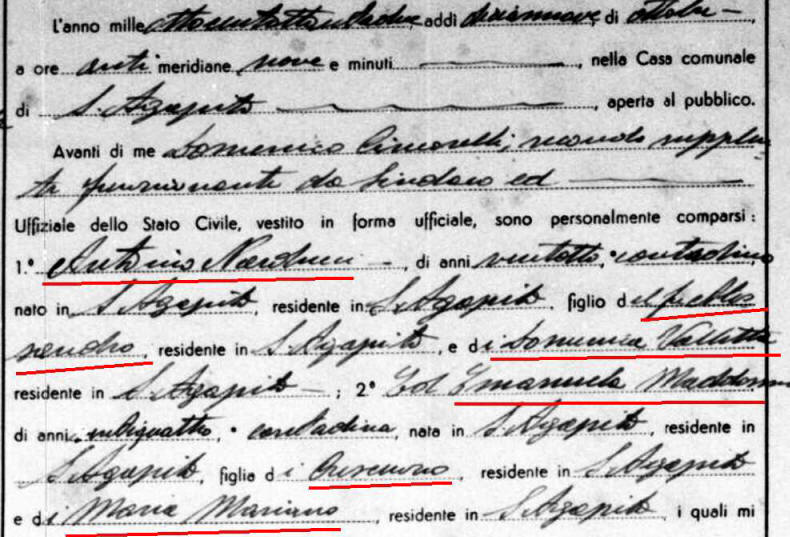 L'anno mille ottocentottantadue, addì diciannove di ottobre,
a ore anti meridiane nove e minuti, nella Casa comunale
di S. Agapito, aperta al pubblico.
Avanti di me Domenico Cimorelli, secondo supplen
te funzionante da Sindaco ed
Uffiziale dello Stato Civile, vestito in forma ufficiale, sono personalmente comparsi :
1.° Antonio Narducci, di anni ventotto, contadino
nato in S. Agapito, residente in S. Agapito, figlio d
residente in S. Agapito, e di Domenica Valletta
residente in S. Agapito ; 2° Ed Emanuela Maddonni
di anni ventiquattro, contadina, nata in S. Agapito, residente in
S. Agapito, figlia di Crescenzo, residente in S. Agapito
e di Maria Mariano, residente in S. Agapito, i quali mi